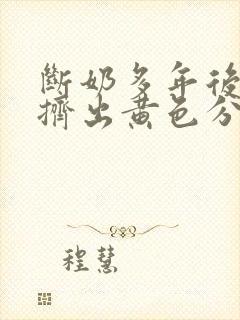 斷奶多年後
擠出黄色分
程慧